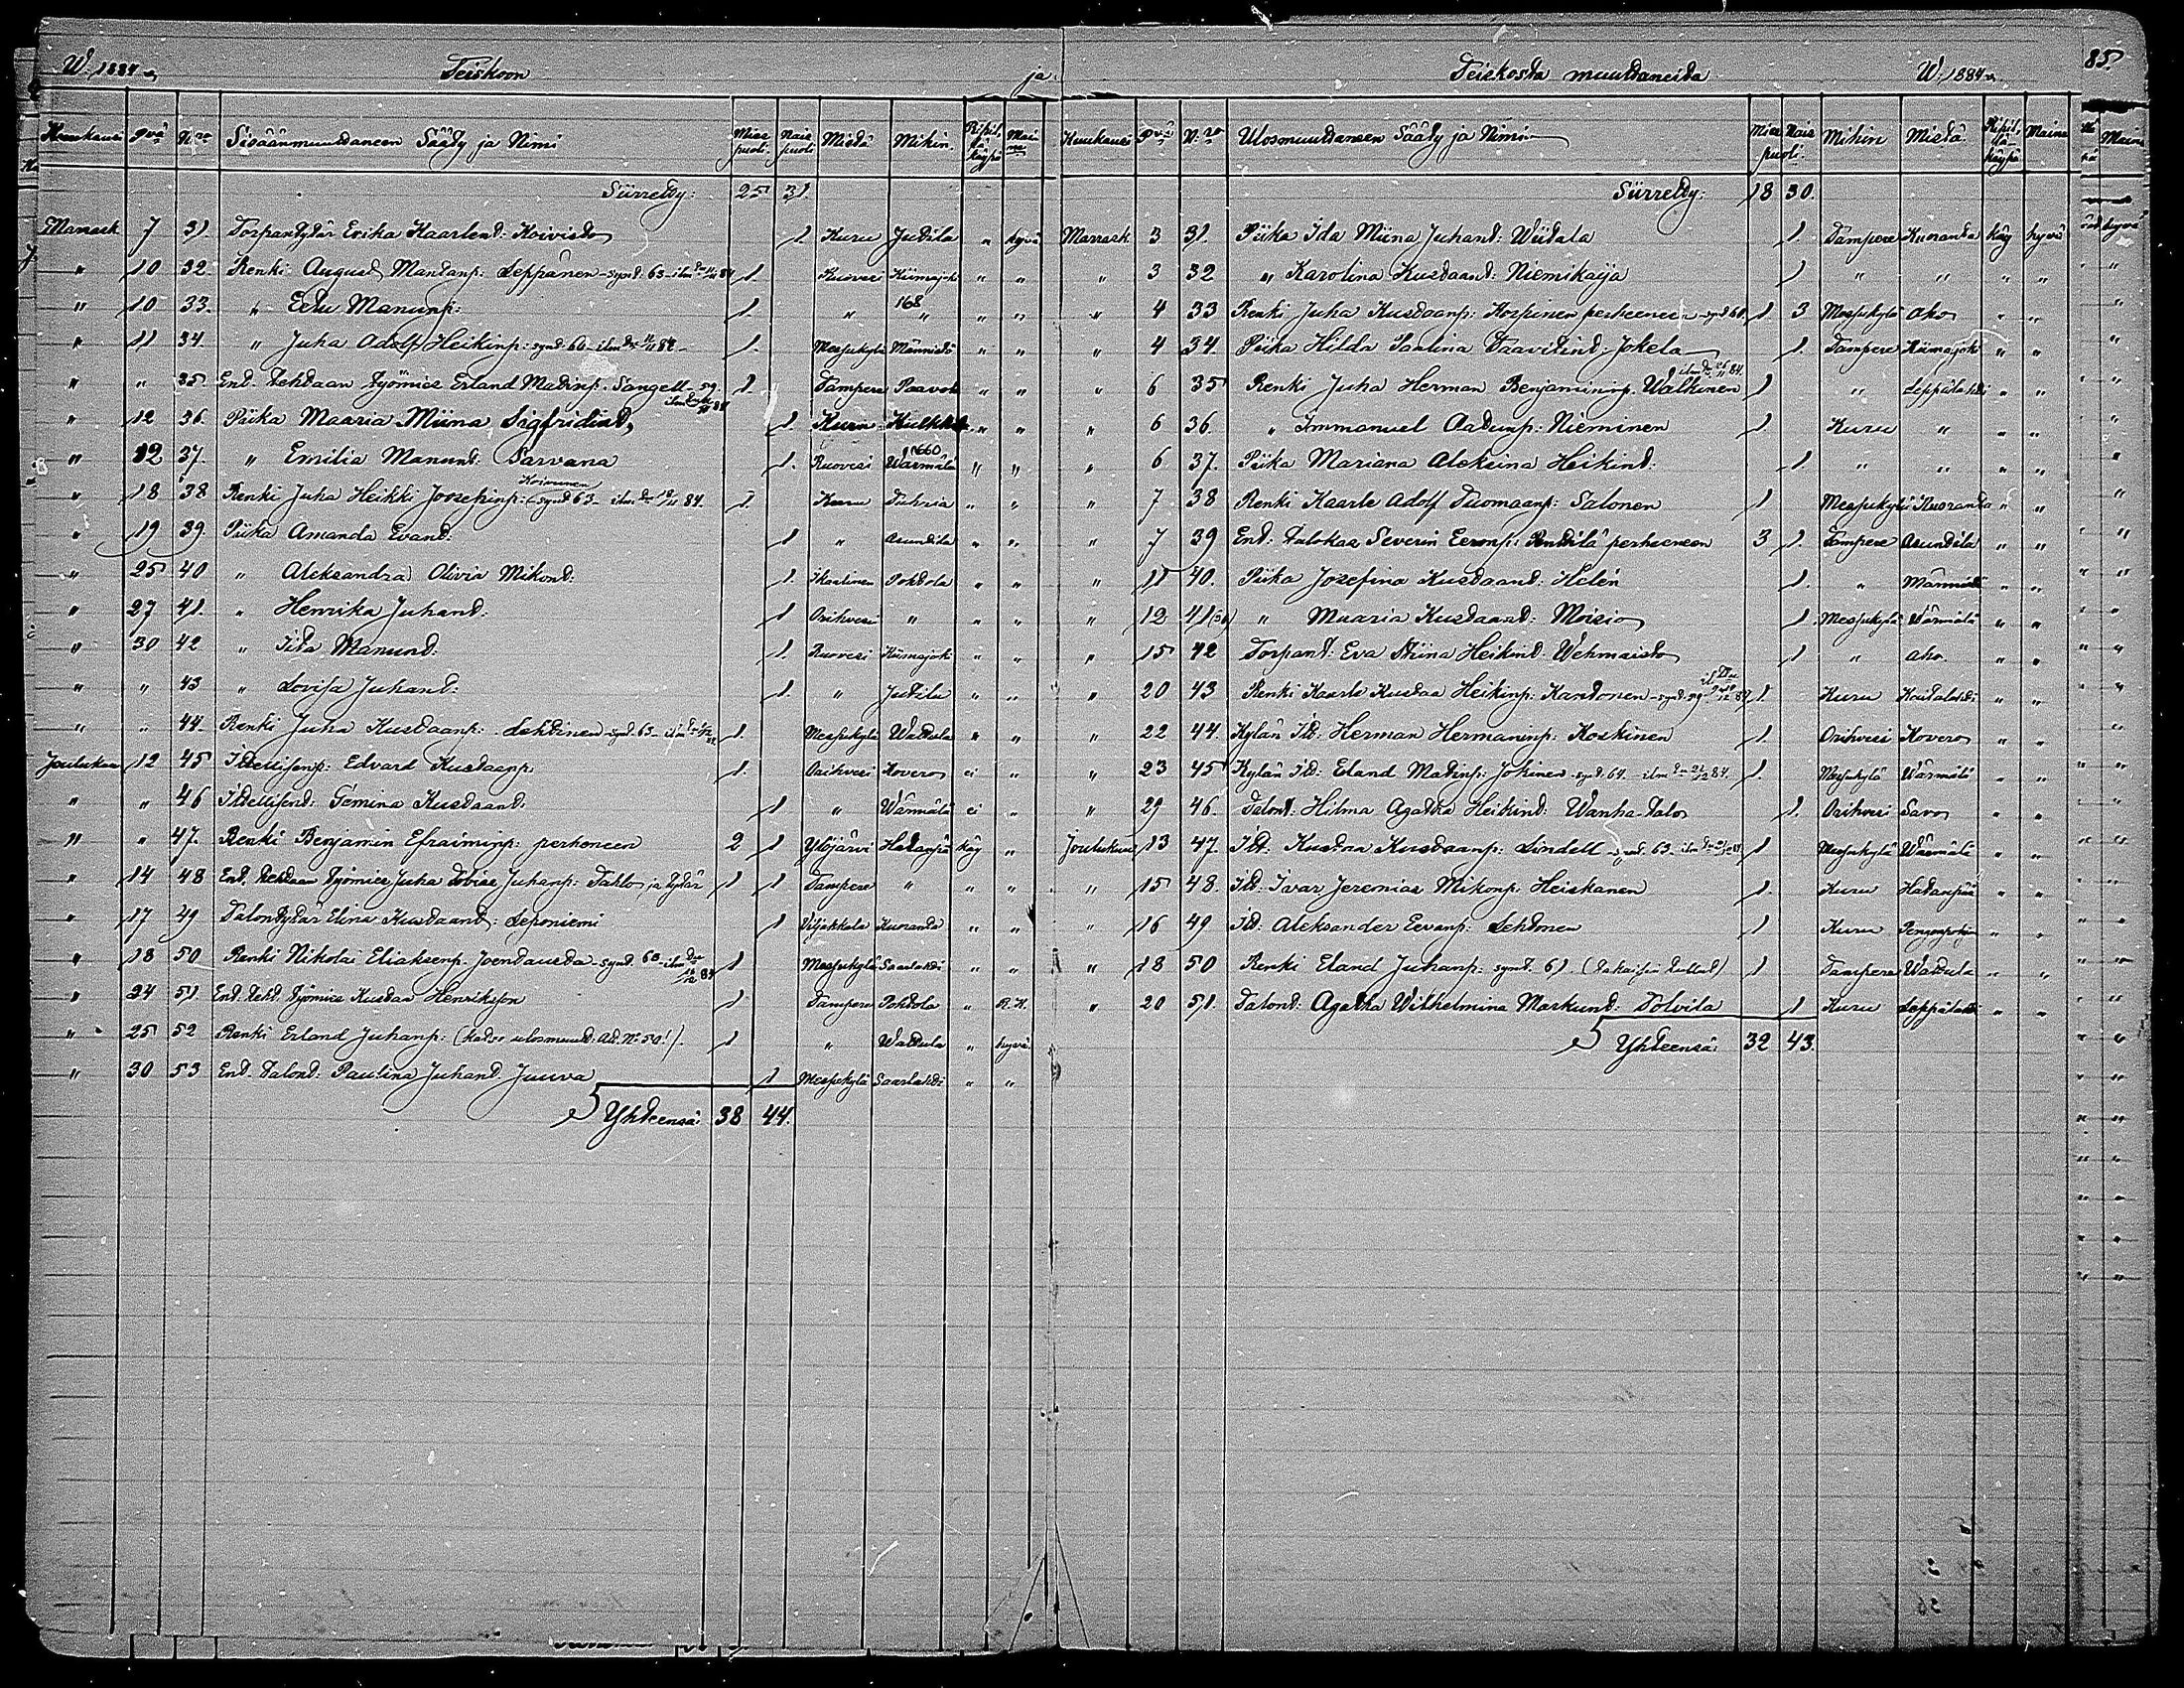 W. 1884 Teiskoon ja
Kuukausi Pvä Nro Sisäänmuuttaneen Sääty ja Nimi Mies puoli Nais puoli Mistä Mihin Ripillä käypä Maine
Siirretty: 25 31.
Marrask. 7 31. Torpantytär Erika Kaarlent: Koivisto 1. Kuru Juttila " hyvä
" 10 32. Renki August Mantanp: Leppänen - synt: 63 - 84 1. Ruovesi Kiimajoki " "
" 10 33. " Eetu Manunp: 1. " 168 " " "
" 11 34. " Juha Adolf Heikinp: synt: 60 - 84 - 1. Messukylä Männistö " "
" " 35 Ent. Tehtaan Työmies Erland Matinp. Sangell - 84 1. Tampere Paavola " "
" 12 36. Piika Maaria Miina Sigfridint, 1. Kuru Kulkkila " "
" 12 37. " Emilia Manunt: Sarvana 1. Ruovesi 1660 Wärmälä " "
" 18 38 Renki Juha Heikki Joosepinp: Koivunen (synt 63 - 84. 1. Kuru " "
" 19 39. Piika Amanda Evant: 1 " Asuntila " "
" 25 40 " Aleksandra Olivia Mikont: 1. Ikaalinen Pohtola " "
" 27 41. " Henrika Juhant: 1 Orihvesi " " "
" 30 42 " Iita Manunt: 1. Ruovesi Kiimajoki " "
" " 43 " Lovisa Juhant: 1. " Juttila " "
" " 44. Renki Juha Kustaanp: Lehtinen - synt. 63 - 1. Messukylä Wattula " "
Joulukuu 12 45 Itsellisenp: Edvard Kustaanp. 1. Orihvesi Kovero ei "
" " 46 Itsellisent: Gemina Kustaant: 1 " Wärmälä ei "
" " 47. Renki Benjamin Efraiminp: perheneen 2 1 Ylöjärvi Hatanpä käy "
" 14 48 Ent. Tehtaan Työmies Juha Tobias Juhanp: Tahlo ja tytär 1 1 Tampere " " "
" 17 49 Talontytär Elina Kustaant: Leponiemi 1 Viljakkala Kuoranta " "
" 18 50 Renki Nikolai Eliaksenp. Joentausta - synt. 60 - 84 1 Messukylä Saarlahti " "
" 24 51. Ent. teht. Työmies Kustaa Henriksson 1. Tampere Pohtola " R. K.
" 25 52 Renki Erland Juhanp: (katso ulosmuut: Al. No 50!). 1 " Wattula " hyvä.
" 30 53 Ent. Talont: Paulina Juhant. Juuva 1 Messukylä Saarlahti " "
Yhteensä: 38 44.
Teiskosta muuttaneita W. 1884 85.
Kuukausi Pvä Nro Ulosmuuttaneen Sääty ja Nimi Mies Nais puoli: Mihin Mistä Ripillä käypä Maine
Siirretty: 18 30.
Marrask. 3 31. Piika Ida Miina Juhant: Wiitala 1. Tampere Kuoranta käy hyvä
" 3 32 " Karolina Kustaant: Niemikaija 1 " " " "
" 4 33 Renki Juha Kustaanp: Korpinen perheeneen - synt 60. 1 3 Messukylä Aho " "
" 4 34. Piika Hilda Paulina Taavitint: Jokela 1. Tampere Kiimajoki " "
" 6 35 Renki Juha Herman Benjamininp. Walkinen 84 1 " Leppälahti " "
" 6 36. " Immanuel Aatunp: Nieminen 1. Kuru " " "
" 6 37. Piika Mariana Aleksina Heikint: 1 " " " "
" 7 38 Renki Kaarle Adolf Tuomaanp: Salonen 1 Messukylä Kuoranta " "
" 7 39 Ent: Talokas Severin Eeronp: Penttilä perheeneen 3 1. Tampere Asuntila " "
" 11 40. Piika Josefina Kustaant: Helén 1. " Männistö " "
" 12 41 " Maaria Kustaant: Moisio 1. Messukylä Wärmälä " "
" 15 42 Torpant: Eva Stiina Heikint: Wehmaisto 1 " Aho. " "
" 20 43 Renki Kaarle Kustaa Heikinp: Kantonen - synt. 59 1. Kuru Koutalahti " "
" 22 44. Kylän Itl: Herman Hermaninp: Koskinen 1. Orihvesi Kovero " "
" 23 45 Kylän Itl: Erland Matinp: Jokinen - synt. 64. - 84. 1. Messukylä Wärmälä " "
" 29 46. Talont: Hilma Agatha Heikint: Wanha-talo 1. Orihvesi Savo " "
Joulukuu 13 47. Itl: Kustaa Kustaanp: Lindell - synt. 63 - 1 Messukylä Wärmälä " "
" 15 48. Itl: Ivar Jeremias Mikonp: Heiskanen 1. Kuru Hatanpää " "
" 16 49 Itl: Aleksander Eevanp: Lehtonen 1 Kuru Pengonpohja " "
" 18 50 Renki Erland Juhanp: synt. 61. (Takaisin tullut) 1 Tampere Wattula " "
" 20 51. Talont: Agatha Wilhelmina Markunt: Tolvila 1 Kuru Leppälahti " "
Yhteensä: 32 43.